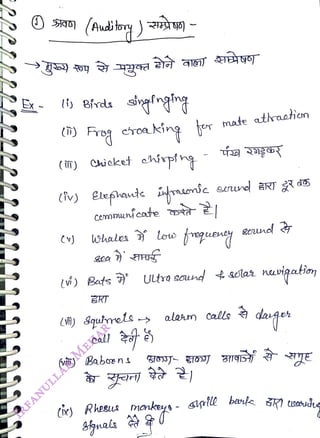 ① श्रवण (Auditory) सम्प्रेषण -
→ मुख्य रूप से प्रयुक्त होने वाला सम्प्रेषण
Ex - (i) Birds singinging
(ii) Frog croaking for mate attraction
(iii) Chicket chirping - पंख रगड़कर
(iv) Elephants infrasonic sound द्वारा दूर तक
communicate करते है।
(v) Whales में low frequency sound से
sea में सम्पर्क
(vi) Bats में Ultrasound & solar navigation
द्वारा
(vii) Squirrels → alarm calls से danger
call देती है)
(viii) Baboons अलग-अलग आवाजों से समूह
को सूचना देते है।
(ix) Rhesus monkeys - shrill bark द्वारा warning
signals देते है
IRFANULLAH MEHAR